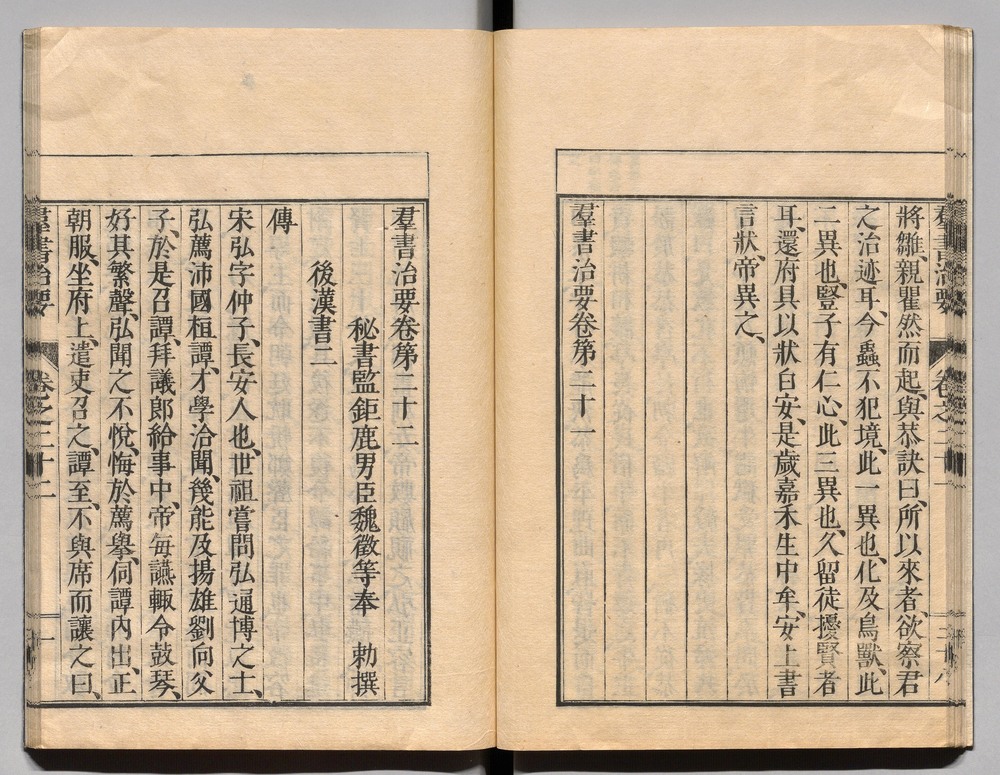 將雛、親瞿然而起、與恭訣曰、所以來者、欲察君
之治迹耳、今蟲不犯境、此一異也、化及鳥獸、此
二異也、豎子有仁心、此三異也、久留徒擾賢者
耳、還府具以狀白安、是歲嘉禾生中牟、安上書
言狀、帝異之、
羣書治要卷第二十一
羣書治要卷第二十二
秘書監鉅鹿男臣魏徵等奉 勅撰
後漢書二
傳
宋弘字仲子、長安人也、世祖嘗問弘通博之士、
弘薦沛國桓譚、才學洽聞、幾能及揚雄劉向父
子、於是召譚、拜議郎給事中、帝每讌輙令鼓琴、
好其繁聲、弘聞之不悅、悔於薦擧、伺譚內出、正
朝服、坐府上、遣吏召之、譚至、不與席而讓之曰、
羣書治要 卷之二十二 一